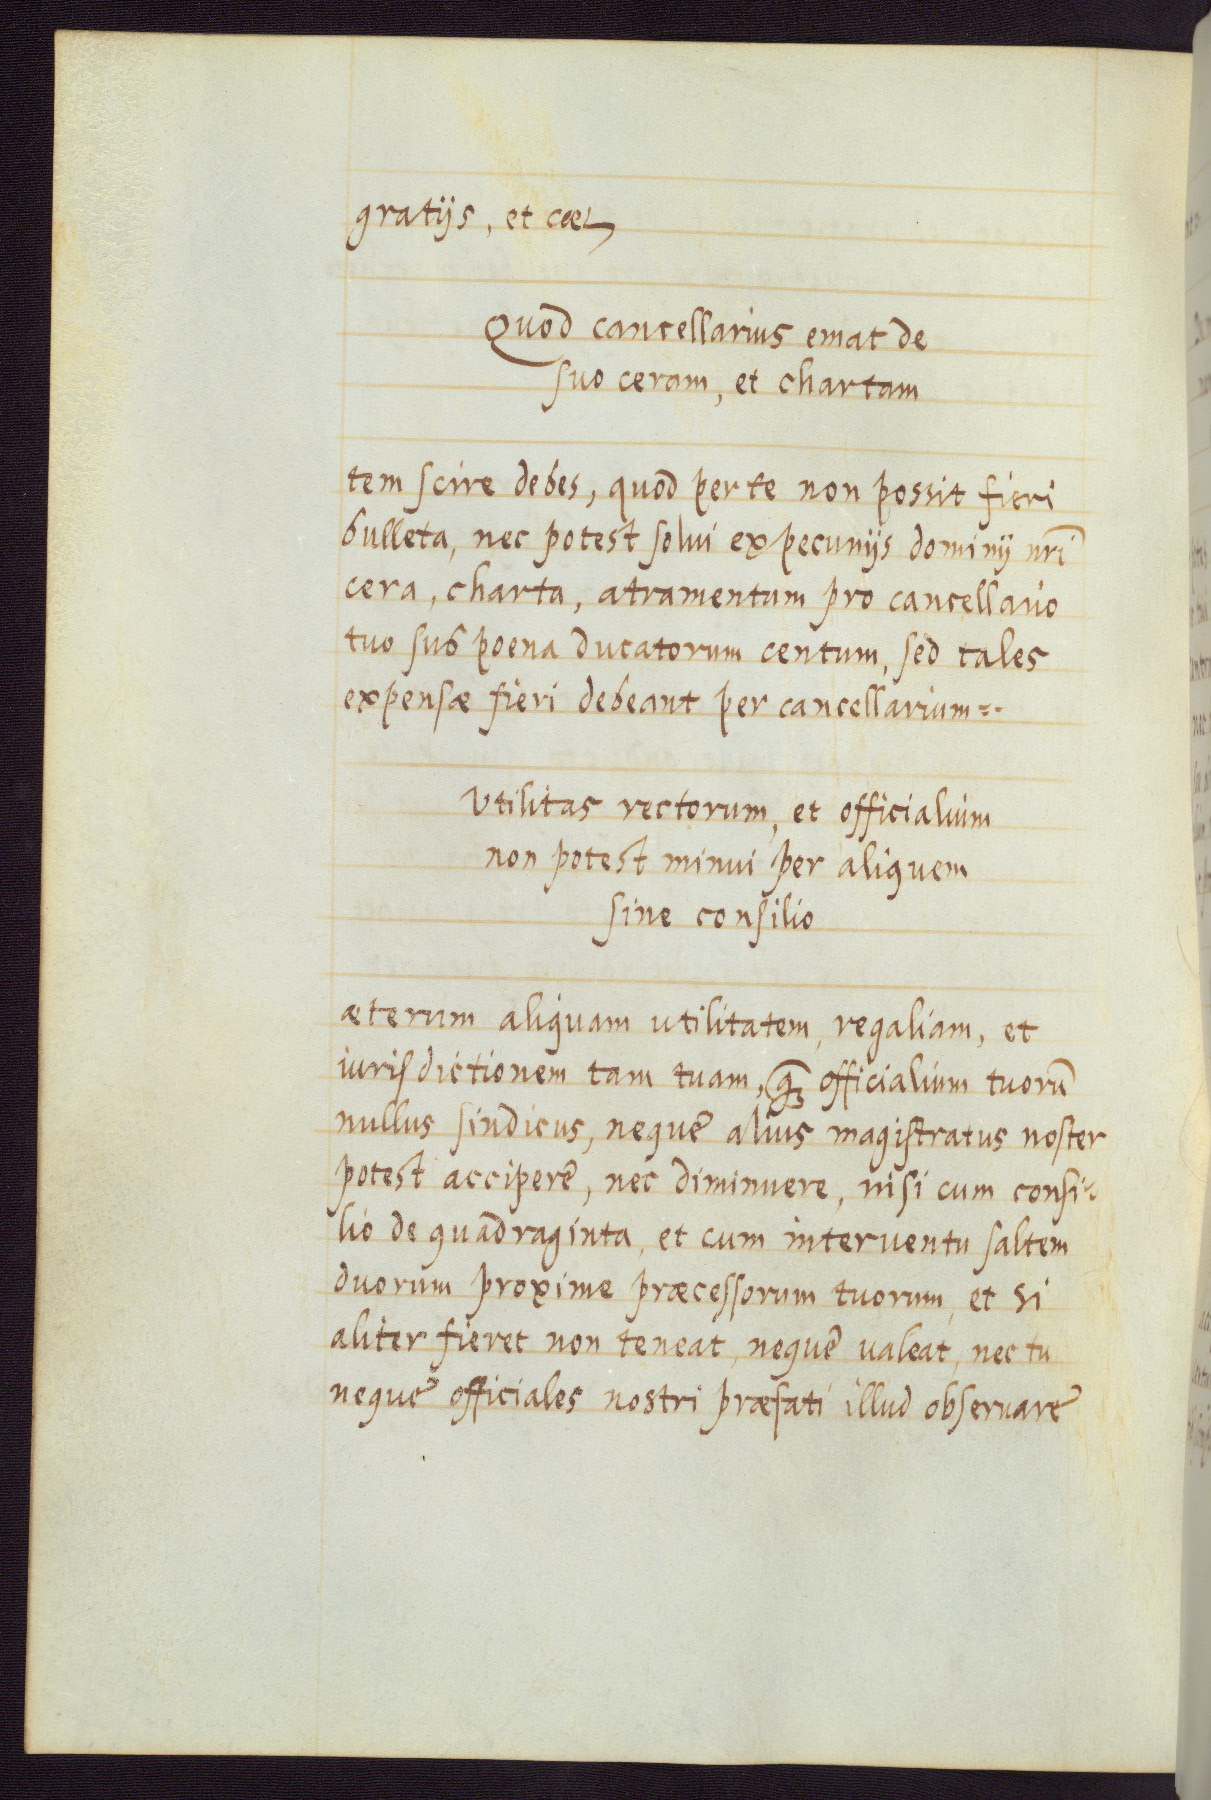 gratijs, et cæt
Quod cancellarius emat de
suo ceram, et chartam
tem scire debes, quod per te non possit fieri
bulleta, nec potest solui ex pecunijs dominij nr̄i
cera, charta, atramentum pro cancellario
tuo sub poena ducatorum centum, sed tales
expensæ fieri debeant per cancellarium
Vtilitas rectorum, et officialium
non potest minui per aliquem
sine consilio
æterum aliquam vtilitatem, regaliam, et
iurisdictionem tam tuam, officialium tuorū
nullus sindicus, neque alius magistratus noster
potest accipere, nec diminuere, nisi cum consi-
lio de quadraginta, et cum interuentu saltem
duorum proxime præcessorum tuorum, et si
aliter fieret non teneat, neque valeat, nec tu
neque officiales nostri præfati illud obseruare